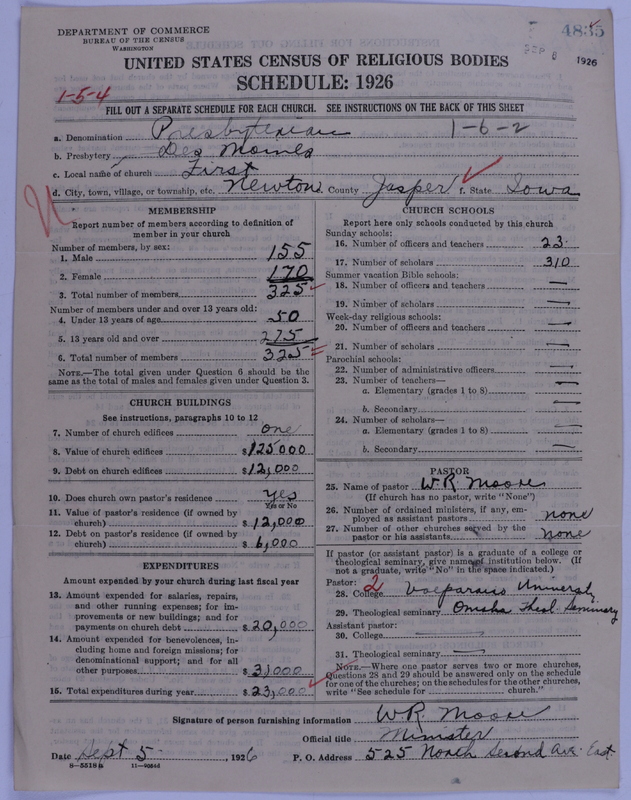 DEPARTMENT OF COMMERCE
BUREAU OF THE CENSUS
WASHINGTON
4835
SEP 8 1926
UNITED STATES CENSUS OF RELIGIOUS BODIES
SCHEDULE: 1926
1-5-4
FILL OUT A SEPARATE SCHEDULE FOR EACH CHURCH. SEE INSTRUCTIONS ON THE BACK OF THIS SHEET
a. Denomination Presbyterian 1-6-2
b. Presbytery Des Moines
c. Local name of church First
d. City, town, village, or township, etc. Newton e. County Jasper f. State Iowa
MEMBERSHIP
Report number of members according to definition of
member in your church
Number of members, by sex:
1. Male 155
2. Female 170
3. Total number of members 325
Number of members under and over 13 years old:
4. Under 13 years of age 50
5. 13 years old and over 275
6. Total number of members 325
NOTE.—The total given under Question 6 should be the
same as the total of males and females given under Question 3.
CHURCH BUILDINGS
See instructions, paragraphs 10 to 12
7. Number of church edifices one
8. Value of church edifices $125000
9. Debt on church edifices $12,000
10. Does church own pastor's residence yes
Yes or No
11. Value of pastor's residence (if owned by
church) $12,000
12. Debt on pastor's residence (if owned by
church) $6,000
EXPENDITURES
Amount expended by your church during last fiscal year
13. Amount expended for salaries, repairs,
and other running expenses; for im-
provements or new buildings; and for
payments on church debt $20,000
14. Amount expended for benevolences, in-
cluding home and foreign missions; for
denominational support; and for all
other purposes $3,000
15. Total expenditures during year $23,000
CHURCH SCHOOLS
Report here only schools conducted by this church
Sunday schools:
16. Number of officers and teachers 23
17. Number of scholars 310
Summer vacation Bible schools:
18. Number of officers and teachers —
19. Number of scholars —
Week-day religious schools:
20. Number of officers and teachers —
21. Number of scholars —
Parochial schools:
22. Number of administrative officers —
23. Number of teachers—
a. Elementary (grades 1 to 8) —
b. Secondary —
24. Number of scholars—
a. Elementary (grades 1 to 8) —
b. Secondary —
PASTOR
25. Name of pastor W.R. Moore
(If church has no pastor, write "None")
26. Number of ordained ministers, if any, em-
ployed as assistant pastors none
27. Number of other churches served by the
pastor or his assistants none
If pastor (or assistant pastor) is a graduate of a college or
theological seminary, give name of institution below. (If
not a graduate, write "No" in the space indicated.)
Pastor: 2
28. College Valparaiso University
29. Theological seminary Omaha Theol. Seminary
Assistant pastor:
30. College —
31. Theological seminary —
NOTE.—Where one pastor serves two or more churches,
Questions 28 and 29 should be answered only on the schedule
for one of the churches; on the schedules for the other churches,
write "See schedule for church."
Signature of person furnishing information W.R. Moore
Official title Minister
Date Sept 5, 1926 P. O. Address 525 North Second Ave. East.
8-5518 11-9056d